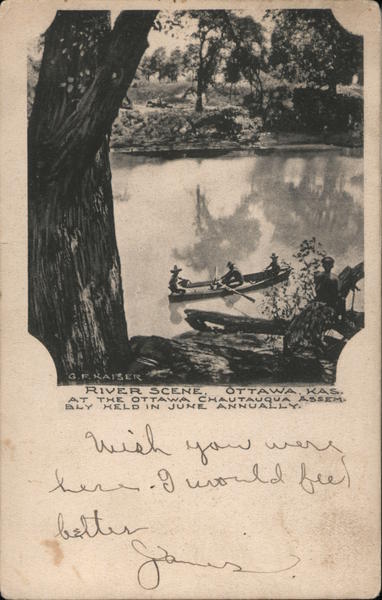 G. F. KAISER
RIVER SCENE, OTTAWA, KAS.
AT THE OTTAWA CHAUTAUQUA ASSEM-
BLY HELD IN JUNE ANNUALLY.
Wish you were
here - I would feel
better
James